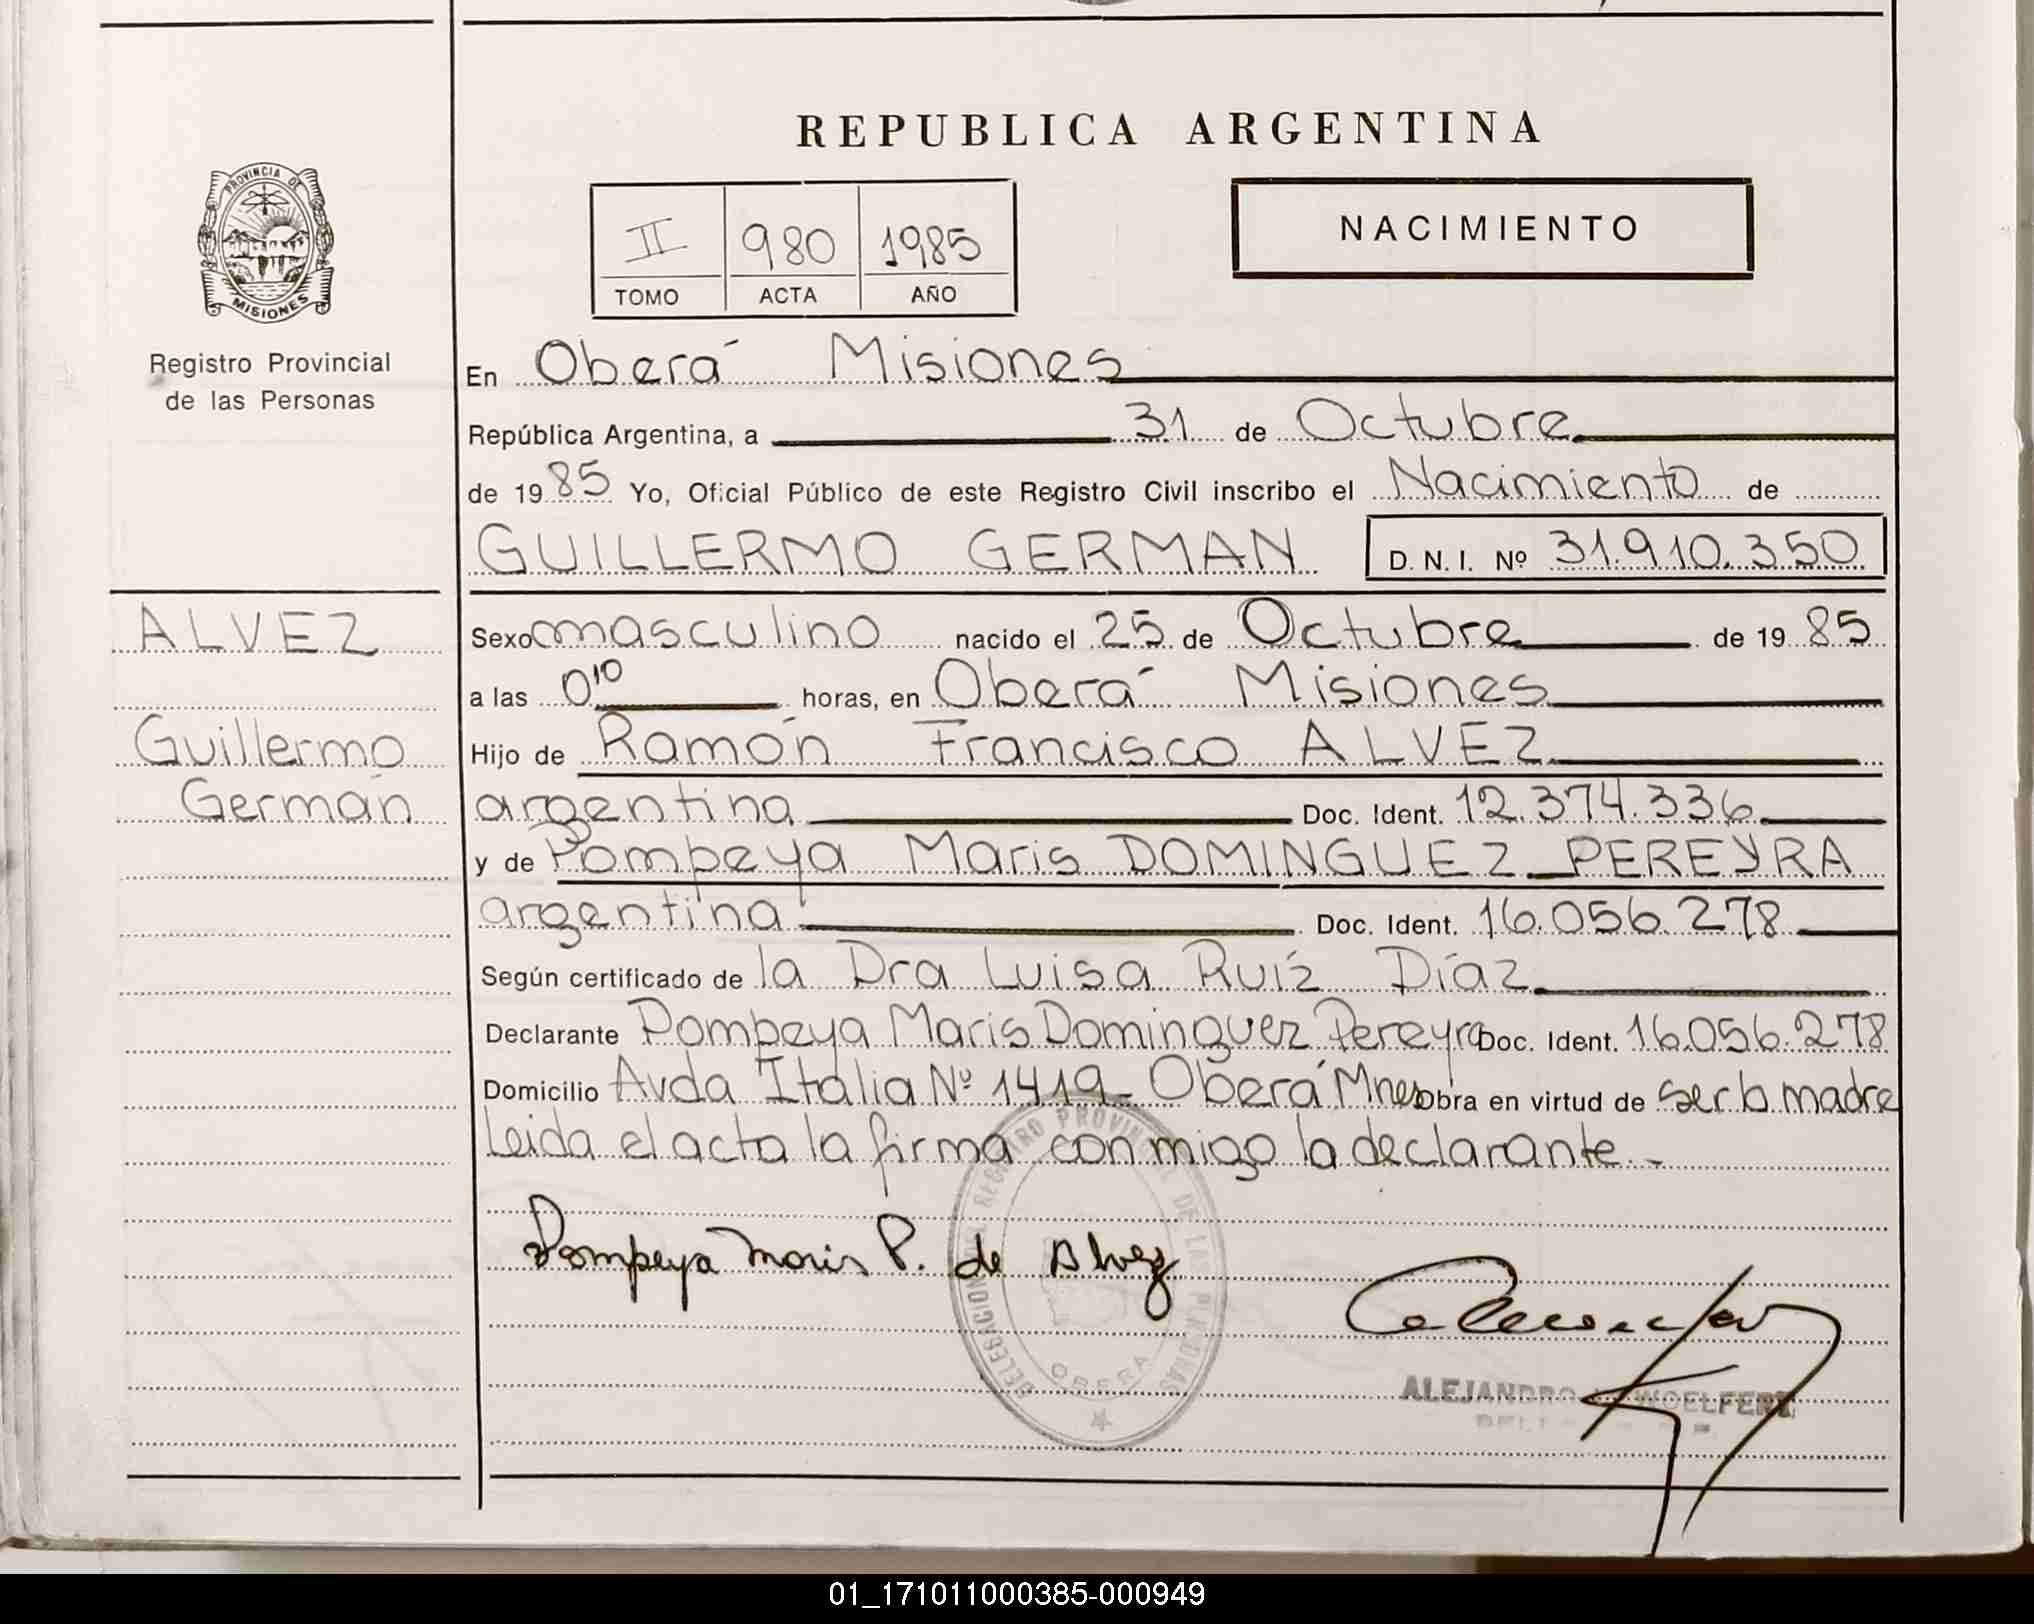 REPUBLICA ARGENTINA
PROVINCIA DE
MISIONES
Registro Provincial
de las Personas
II 980 1985
TOMO ACTA AÑO
NACIMIENTO
En Oberá Misiones
República Argentina, a 31 de Octubre
de 1985 Yo, Oficial Público de este Registro Civil inscribo el Nacimiento de
GUILLERMO GERMAN D. N. I. Nº 31.910.350
ALVEZ
Guillermo
Germán
Sexo masculino nacido el 25 de Octubre de 1985
a las 0¹⁰ horas, en Oberá Misiones
Hijo de Ramón Francisco ALVEZ
argentina Doc. Ident. 12.374.336
y de Pompeya Maris DOMINGUEZ PEREYRA
argentina Doc. Ident. 16.056.278
Según certificado de la Dra Luisa Ruíz Díaz
Declarante Pompeya Maris Dominguez Pereyra Doc. Ident. 16.056.278
Domicilio Avda Italia Nº 1419- Oberá Mnes Obra en virtud de ser la madre
Leida el acta la firma conmigo la declarante.-
Pompeya Maris P. de Alvez
REGISTRO PROVINCIAL DE LAS PERSONAS
OBERA
ALEJANDRO WOELFERT
01_171011000385-000949